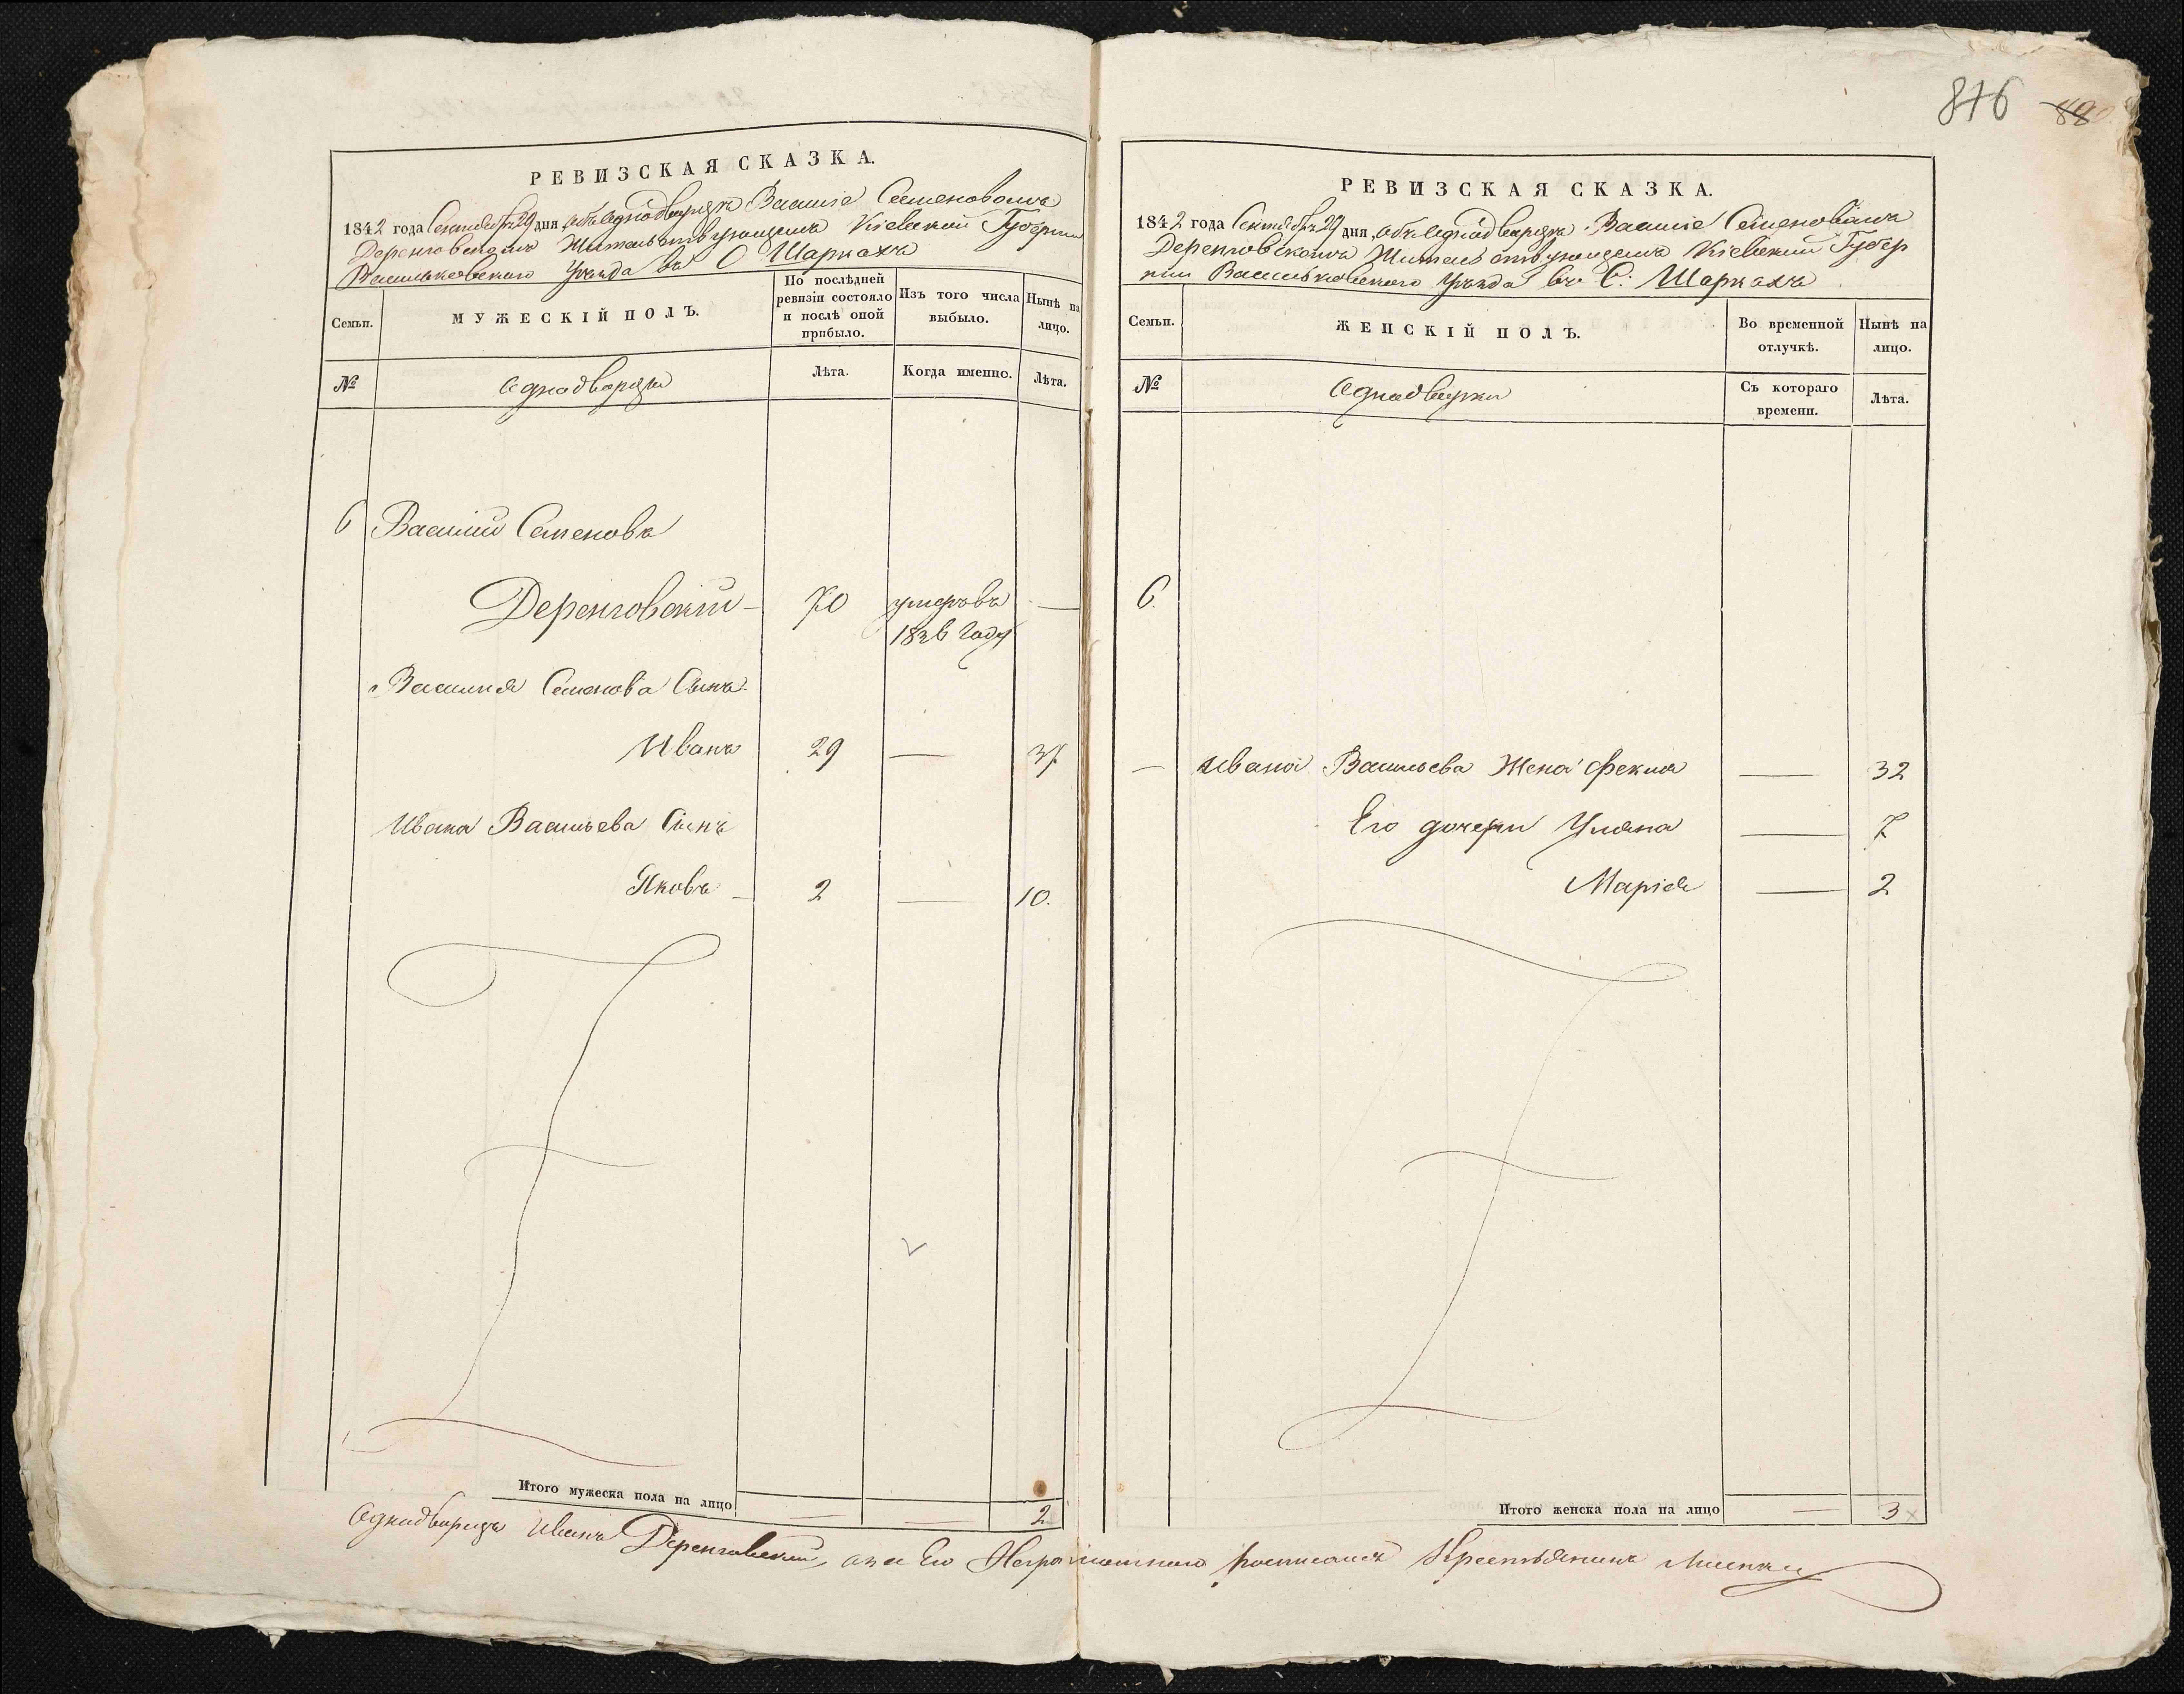 876 880
РЕВИЗСКАЯ СКАЗКА.
1842 года Сентября 29 дня, объ однодворцѣ Василіе Семеновомъ
Деренговскомъ Жительствующемъ Кіевской Губерніи
Васильковскаго Уѣзда въ С Шаркахъ
Семьи.
МУЖЕСКІЙ ПОЛЪ.
По послѣдней ревизіи состояло и послѣ оной прибыло.
Изъ того числа выбыло.
Нынѣ на лицо.
№
Однодворцы
Лѣта.
Когда именно.
Лѣта.
6 Василій Семеновъ
Деренговскій - 70 умеръ въ —
1836 году
Василія Семенова Сынъ
Иванъ 29 — 37
Ивана Васильева Сынъ
Яковъ - 2 — 10.
Итого мужеска пола на лицо — — 2
РЕВИЗСКАЯ СКАЗКА.
1842 года Сентября 29 дня, объ однодворцѣ Василіе Семеновомъ
Деренговскомъ Жительствующемъ Кіевской Губер
ніи Васильковскаго Уѣзда въ С. Шаркахъ
Семьи.
ЖЕНСКІЙ ПОЛЪ.
Во временной отлучкѣ.
Нынѣ на лицо.
№
Однодворки
Съ котораго времени.
Лѣта.
6.
— Ивана Васильева Жена Фекла — 32
Его дочери Уляна — 7
Марія — 2
Итого женска пола на лицо — 3
Однодворецъ Иванъ Деренговскій, а за Его Неграмотнаго росписался Крестьянинъ